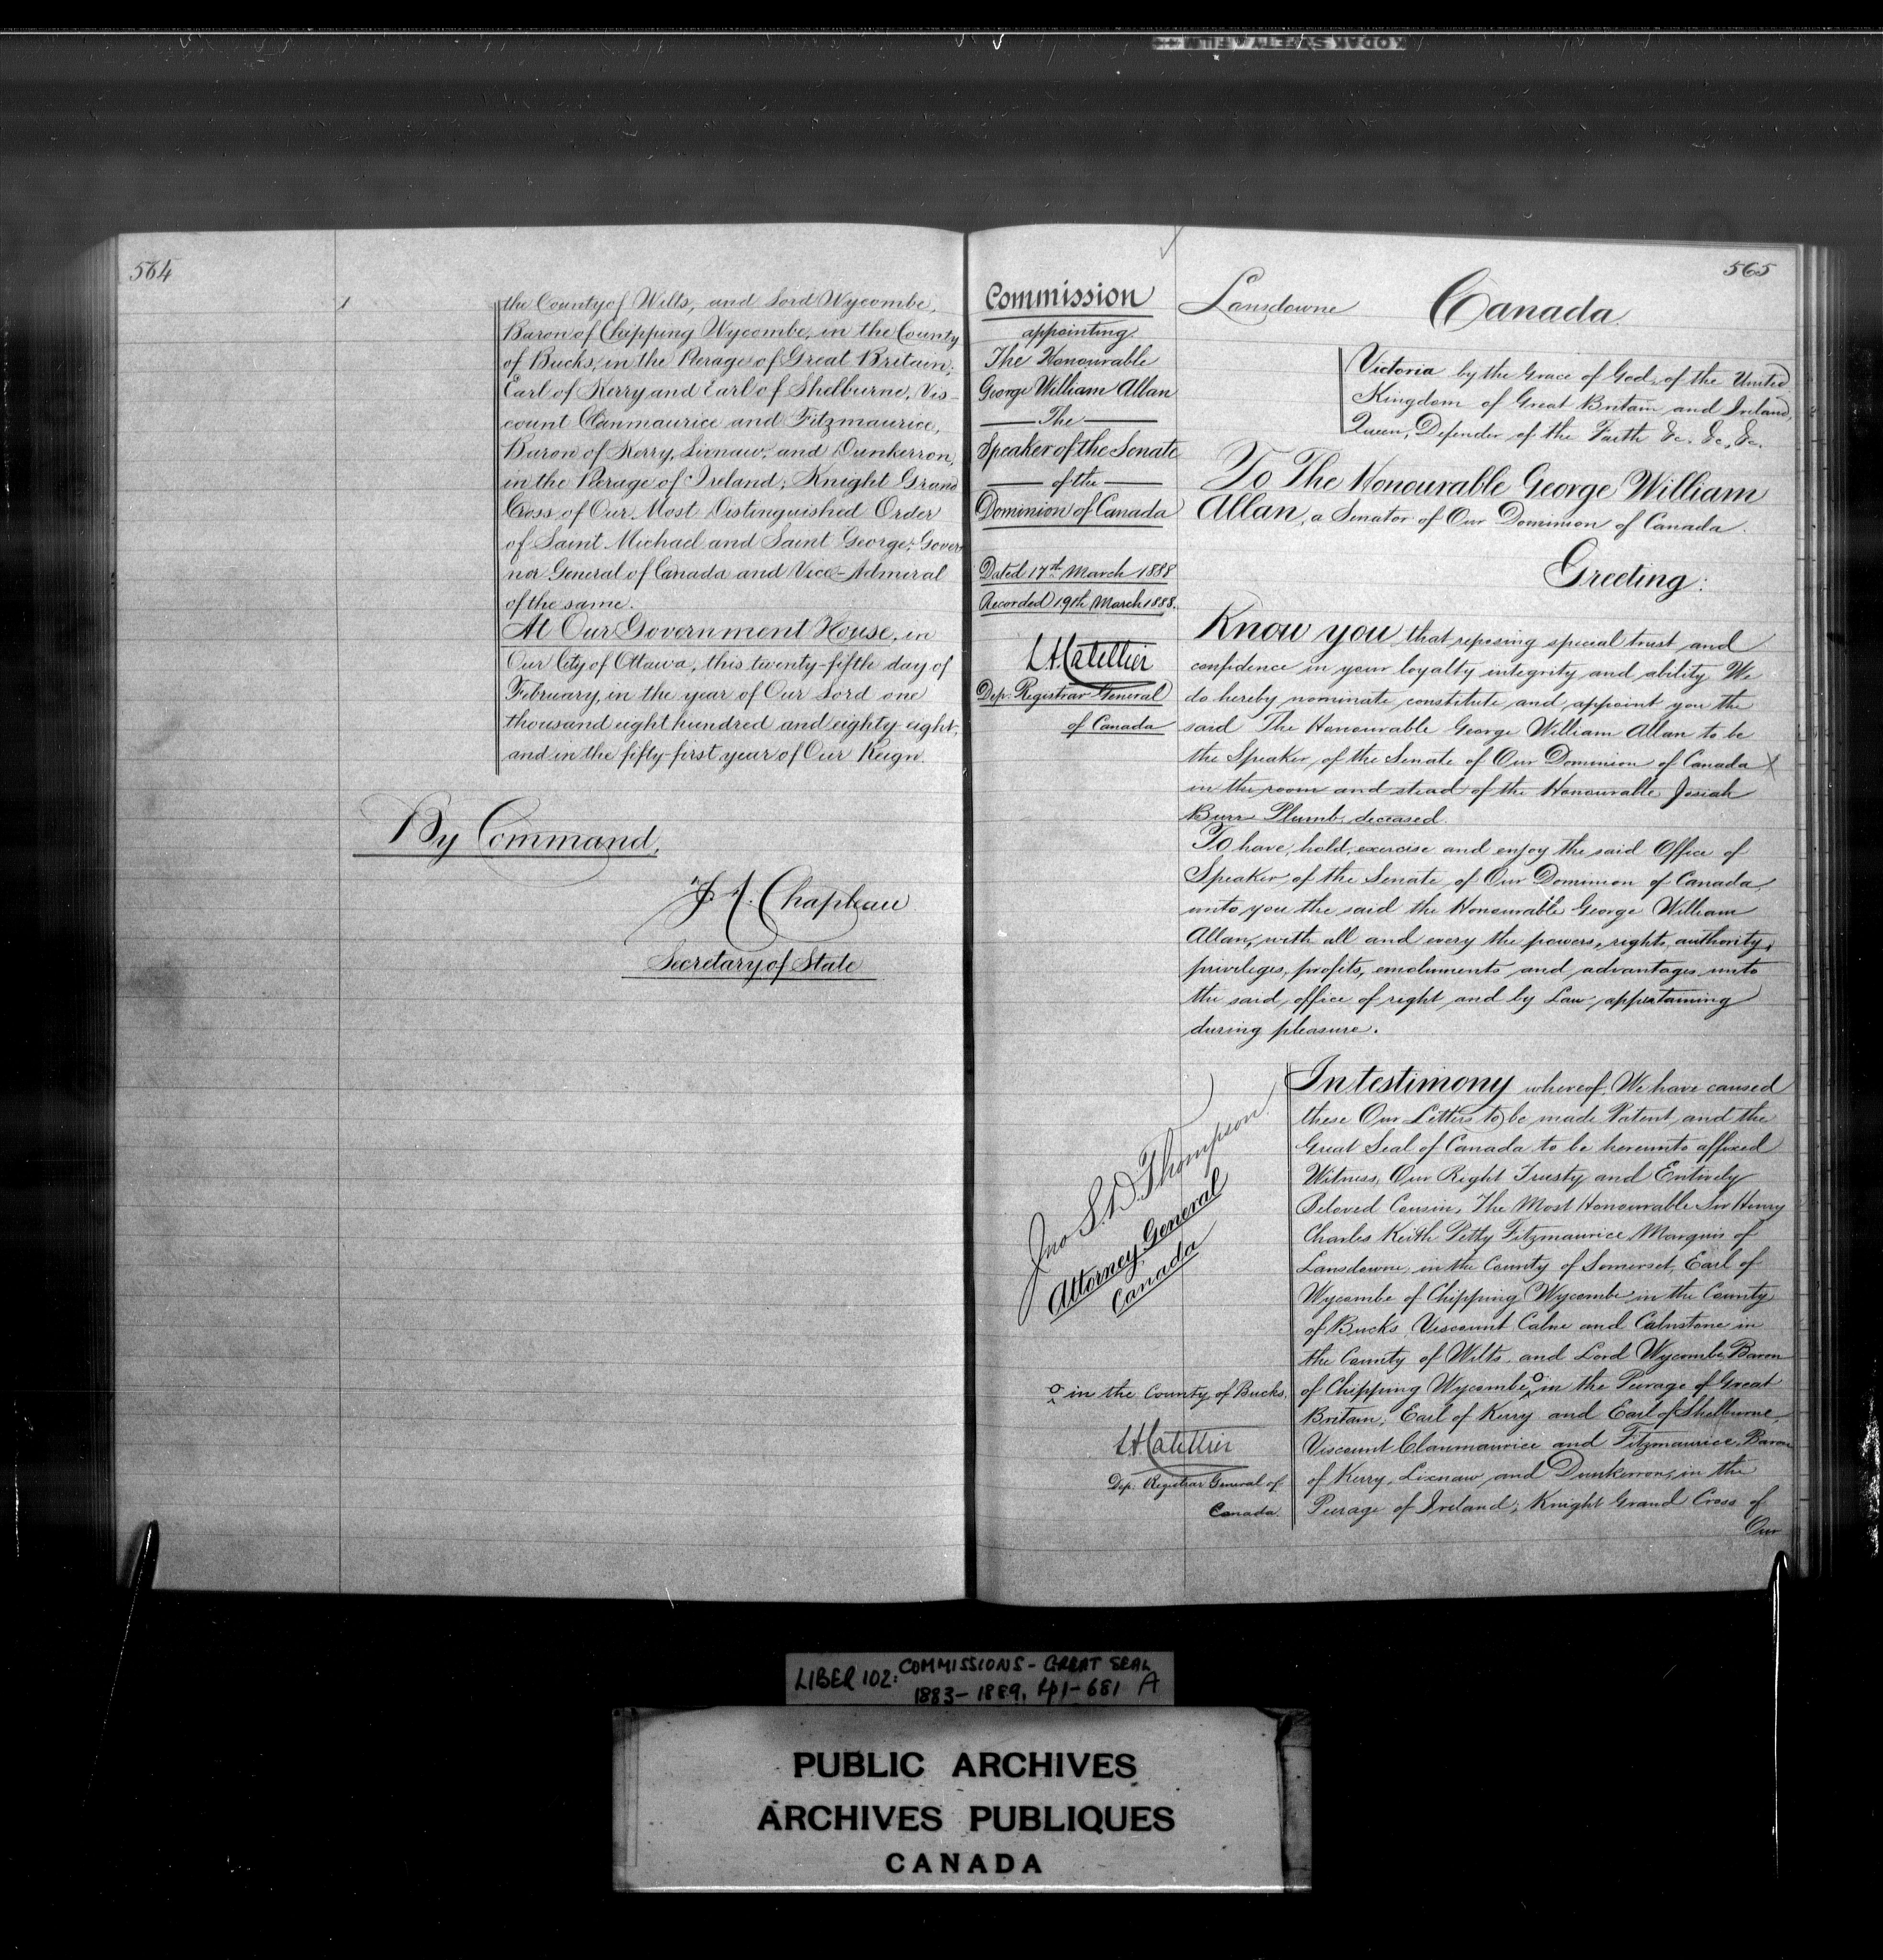 KODAK SAFETY FILM
564
the County of Wilts, and Lord Wycombe,
Baron of Chipping Wycombe, in the County
of Bucks, in the Peerage of Great Britain;
Earl of Kerry and Earl of Shelburne, Vis-
count Clanmaurice and Fitzmaurice,
Baron of Kerry, Lixnaw, and Dunkerron,
in the Peerage of Ireland; Knight Grand
Cross of Our Most Distinguished Order
of Saint Michael and Saint George; Gover
nor General of Canada and Vice-Admiral
of the same.
At Our Government House, in
Our City of Ottawa, this twenty-fifth day of
February, in the year of Our Lord one
thousand eight hundred and eighty eight,
and in the fifty-first year of Our Reign.
By Command,
J A. Chapleau
Secretary of State
565
Commission
appointing
The Honourable
George William Allan
The
Speaker of the Senate
of the
Dominion of Canada
Dated 17th March 1888
Recorded 19th March 1888.
L A Catellier
Dep. Registrar General
of Canada
Lansdowne Canada.
Victoria by the Grace of God, of the United
Kingdom of Great Britain and Ireland,
Queen, Defender of the Faith &c. &c, &c.
To The Honourable George William
Allan, a Senator of Our Dominion of Canada.
Greeting:
Know you that reposing special trust and
confidence in your loyalty integrity and ability We
do hereby nominate constitute and appoint you the
said The Honourable George William Allan to be
the Speaker of the Senate of Our Dominion of Canada X
in the room and stead of the Honourable Josiah
Burr Plumb, deceased.
To have, hold, exercise and enjoy the said Office of
Speaker of the Senate of Our Dominion of Canada,
unto you the said the Honourable George William
Allan, with all and every the powers, rights, authority,
privileges, profits, emoluments and advantages unto
the said office of right and by Law appertaining
during pleasure.
In testimony whereof, We have caused
these Our Letters to be made Patent, and the
Great Seal of Canada to be hereunto affixed
Witness, Our Right Trusty and Entirely
Beloved Cousin, The Most Honourable Sir Henry
Charles Keith Petty Fitzmaurice Marquis of
Lansdowne, in the County of Somerset, Earl of
Wycombe of Chipping Wycombe in the County
of Bucks, Viscount Calne and Calnstone in
the County of Wilts, and Lord Wycombe, Baron
of Chipping Wycombe, o in the Peerage of Great
Britain; Earl of Kerry and Earl of Shelburne,
Viscount Clanmaurice and Fitzmaurice, Baron
of Kerry, Lixnaw and Dunkerron, in the
Peerage of Ireland; Knight Grand Cross of
Our
Jno S. D. Thompson.
Attorney General
Canada
o in the County of Bucks,
L A Catellier
Dep. Registrar General of
Canada.
LIBER 102: COMMISSIONS - GREAT SEAL
1883-1889, pp1-681 A
PUBLIC ARCHIVES
ARCHIVES PUBLIQUES
CANADA